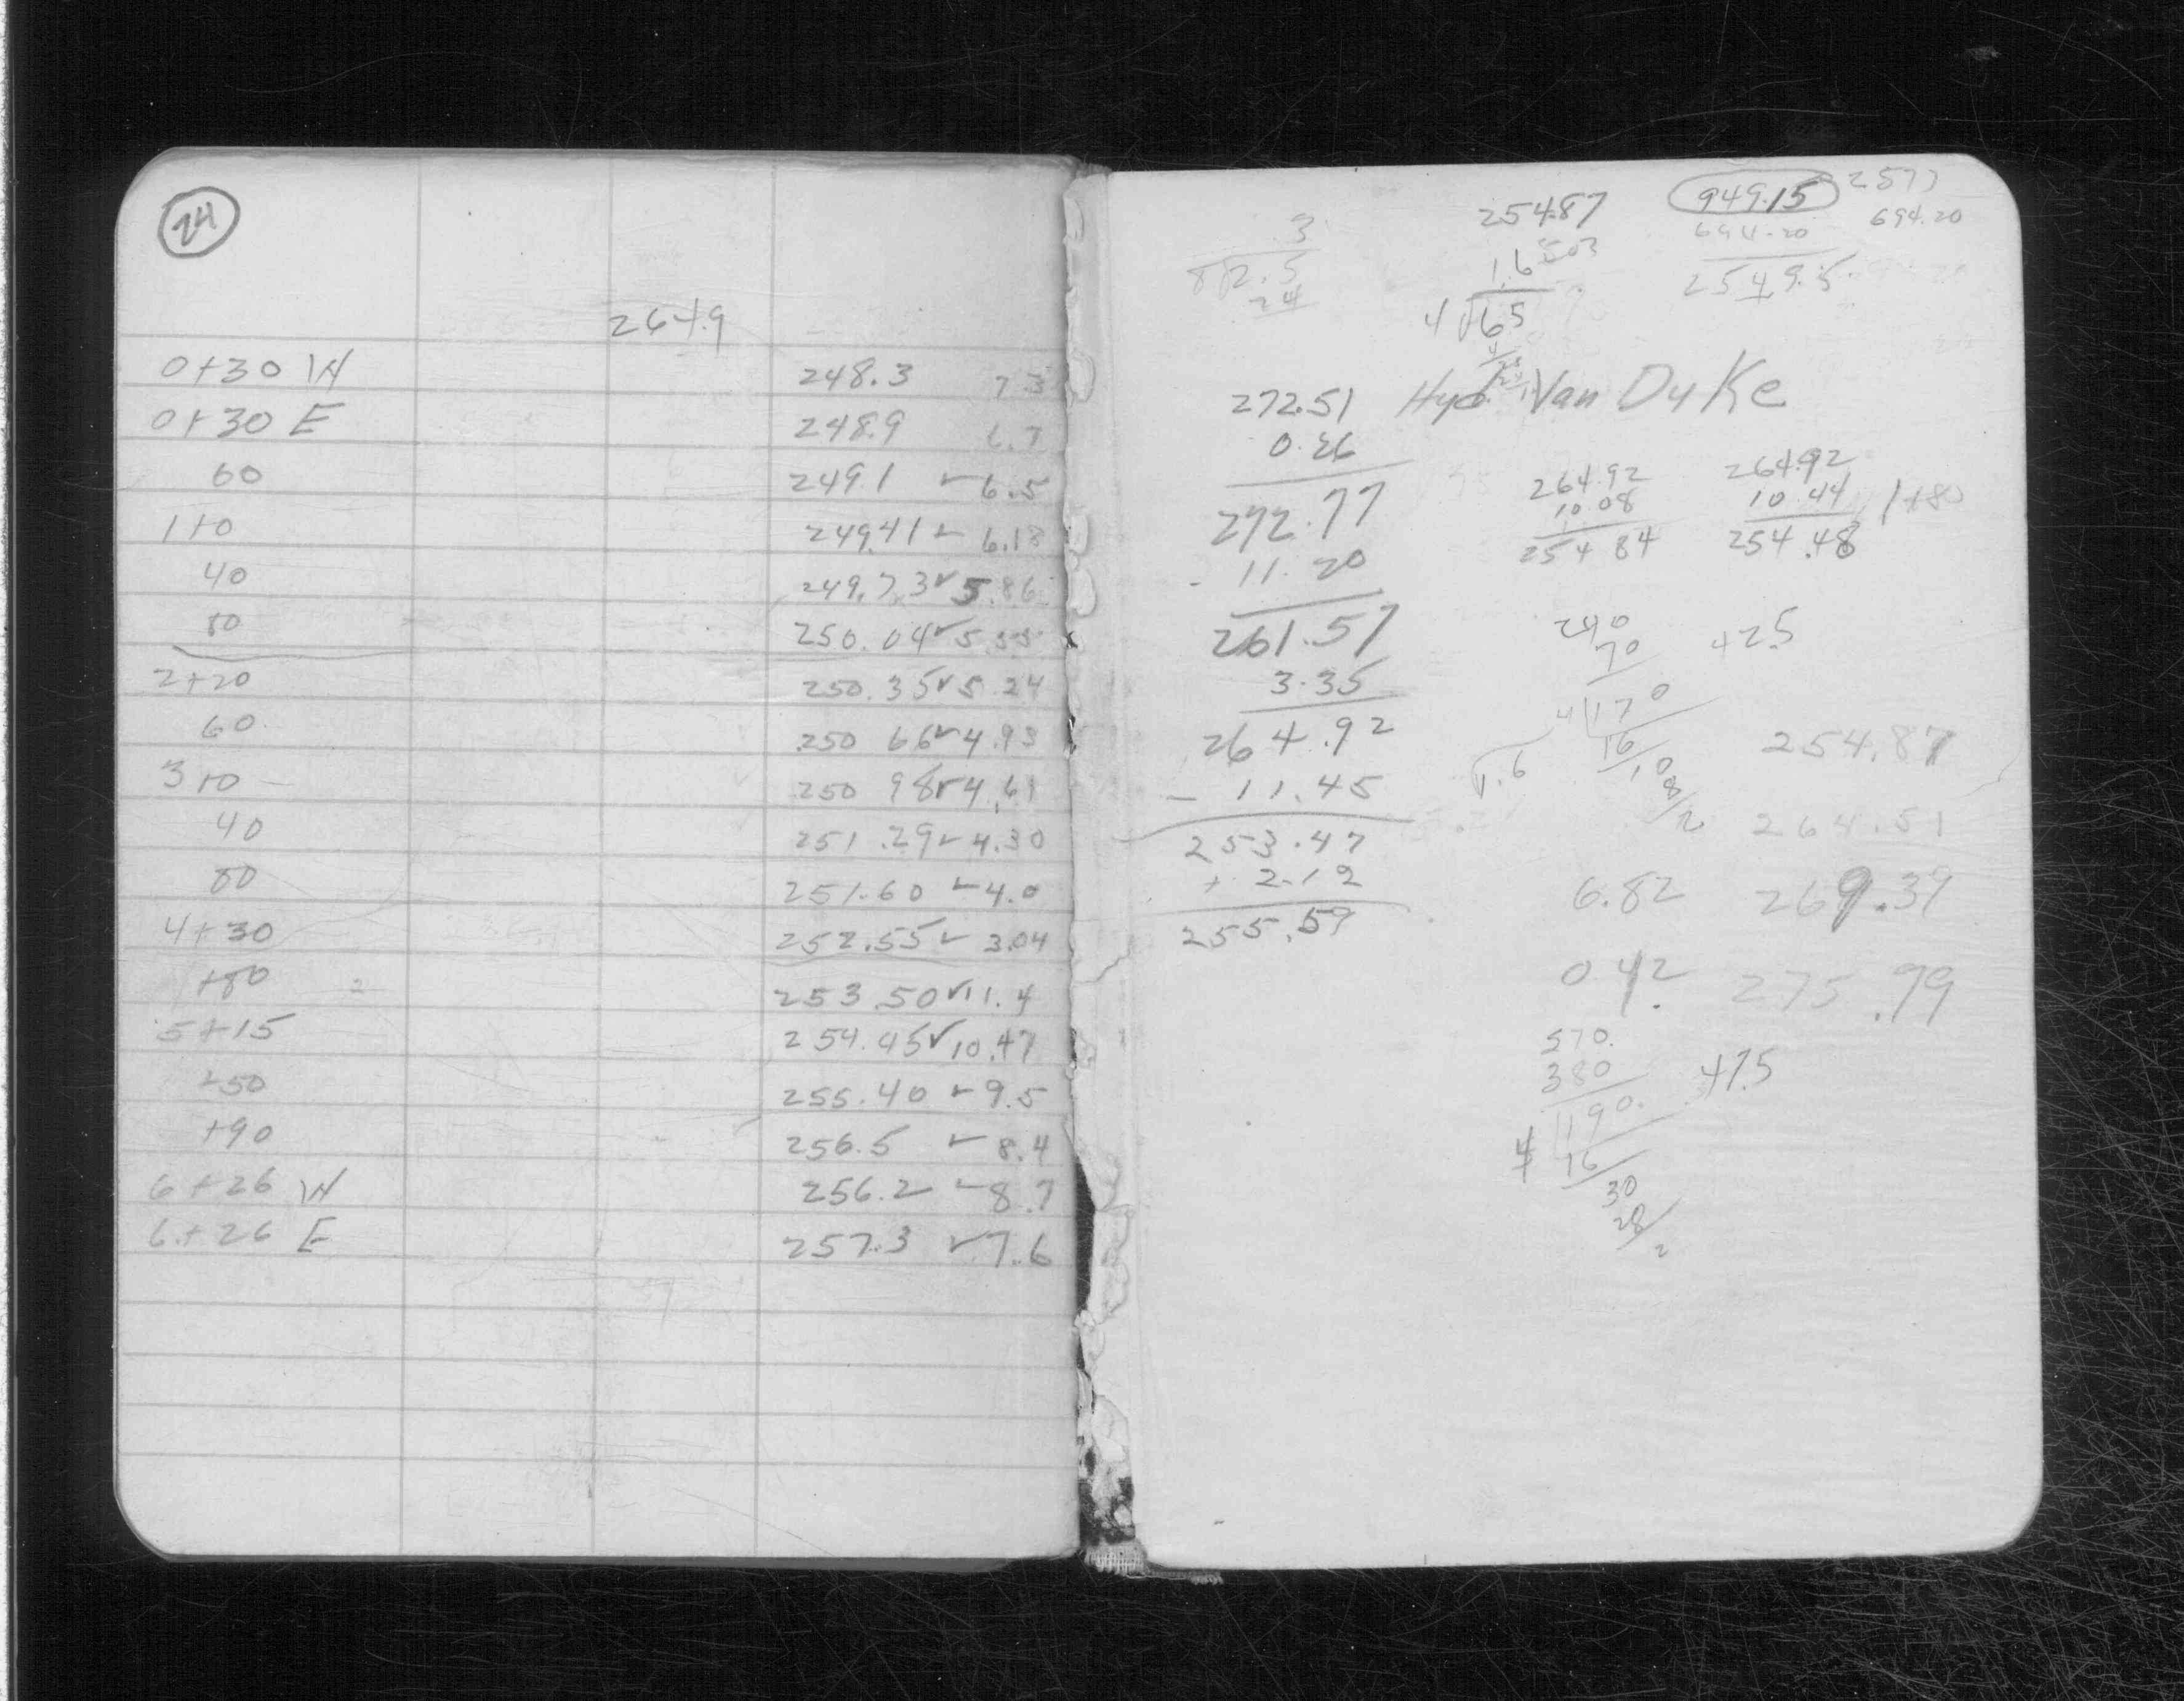 24
264.9
0+30 W 248.3 7.3
0+30 E 248.9 6.7
60 249.1 ✓ 6.5
1+0 249.41 ✓ 6.18
40 249.73 ✓ 5.86
80 250.04 ✓ 5.55
2+20 250.35 ✓ 5.24
60 250 66 ✓ 4.93
3+0 250 98 ✓ 4.61
40 251.29 ✓ 4.30
80 251.60 ✓ 4.0
4+30 252.55 ✓ 3.04
+80 253.50 ✓ 11.4
5+15 254.45 ✓ 10.47
+50 255.40 ✓ 9.5
+90 256.5 ✓ 8.4
6+26 W 256.2 ✓ 8.7
6+26 E 257.3 ✓ 7.6
3
8 2.5
24
254.87
1.6
4 65
949.15
694.20
2549.5
694.20
Van DyKe
272.51
0.26
272.77
- 11.20
261.57
3.35
264.92
- 11.45
253.47
+ 2.12
255.59
264.92
10.08
254 84
264.92
10.44 1+80
254.48
240
70 +25
4 170
16
10
8
2
1.6
254.87
264.51
6.82 269.39
0 42 275.99
570.
380 +75
4 190.
16
30
28
2